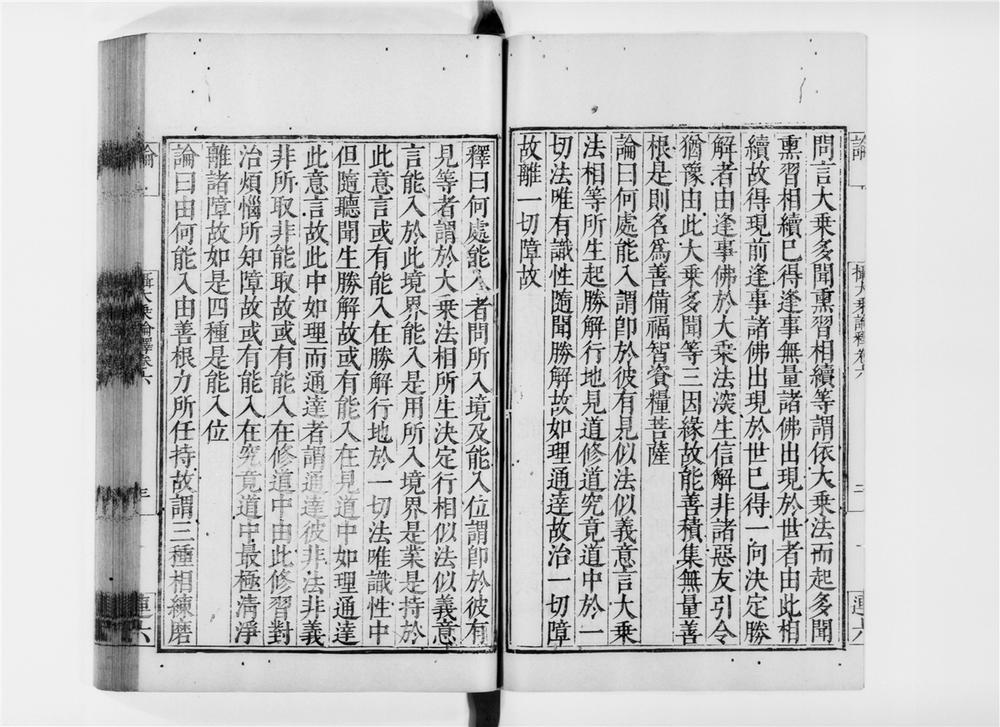 問言大乗多聞熏習相續等謂依大乗法而起多聞
熏習相續已得逢事無量諸佛出現於世者由此相
續故得現前逢事諸佛出現於世已得一向决定勝
解者由逢事佛於大乗法深生信解非諸惡友引令
猶豫由此大乗多聞等三因緣故能善積集無量善
根是則名爲善備福智資糧菩薩
論曰何處能入謂即於彼有見似法似義意言大乗
法相等所生起勝解行地見道修道究竟道中於一
切法唯有識性隨聞勝解故如理通達故治一切障
故離一切障故
釋曰何處能入者問所入境及能入位謂即於彼有
見等者謂於大乗法相所生决定行相似法似義意
言能入於此境界能入是用所入境界是業是持於
此意言或有能入在勝解行地於一切法唯識性中
但隨聽聞生勝解故或有能入在見道中如理通達
此意言故此中如理而通達者謂通達彼非法非義
非所取非能取故或有能入在修道中由此修習對
治煩惱所知障故或有能入在究竟道中最極清淨
離諸障故如是四種是能入位
論曰由何能入由善根力所任持故謂三種相練磨
論
攝大乗論釋卷六
運六